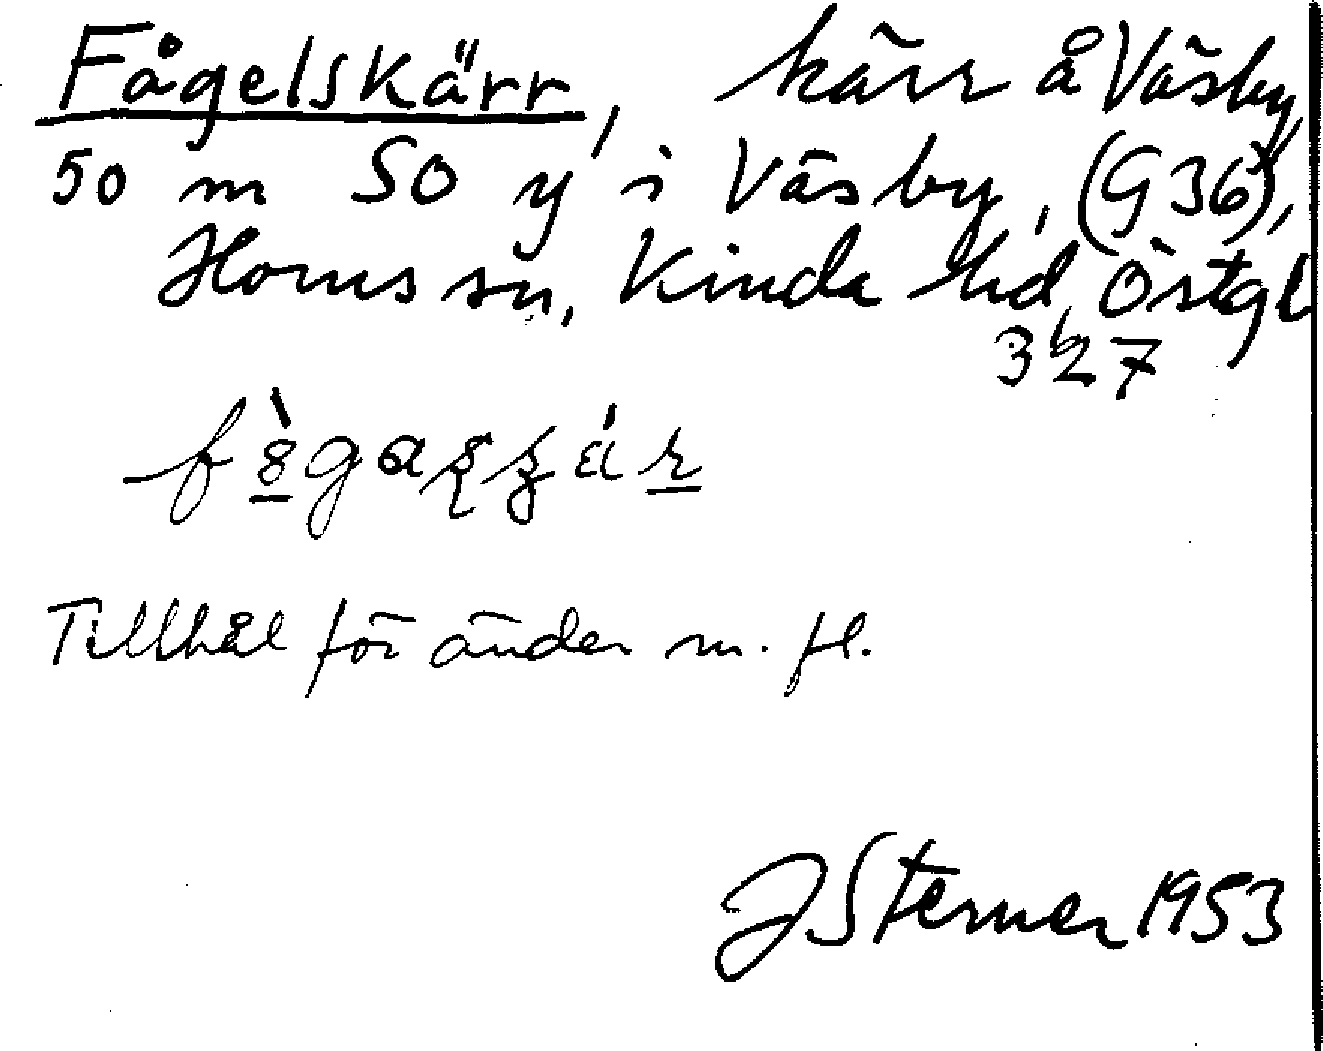 Fågelskärr, kärr å Väsby,
50 m SO y i Väsby, (G36),
Horns sn, Kinda hd, Östgl
327
Tillhål för änder m. fl.
J Sterner 1953